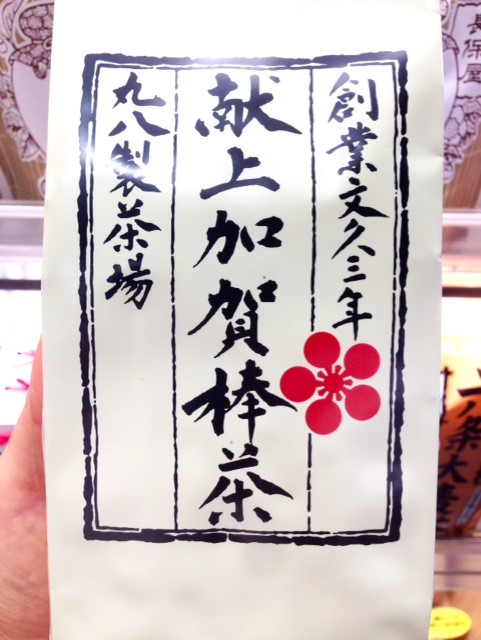 創業文久三年
献上加賀棒茶
丸八製茶場
長保屋